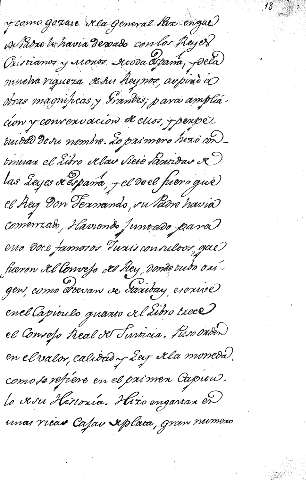 18
y como gozase de la General Paz en que
su Padre le havia dexado con los Reyes
Cristianos y Moros de toda España, y de la
mucha riqueza de sus Reynos, aspiró a
obras magnificas, y Grandes; para amplia-
cion y conservacion de ellos, y perpe-
tuidad de su nombre. Lo primero hizo con-
tinuar el Libro de las Siete Partidas de
las Leyes de España, y el de el fuero que
el Rey Don Fernando, su Padre havia
comenzado, Haviendo juntado para
esso doce famosos Juris consultos, que
fueron del Consejo del Rey, donde tubo ori-
gen, como Estevan de Garibay, escrive
en el Capitulo quarto del Libro trece
el Consejo Real de Justicia. Puso orden
en el valor, calidad y Ley de la moneda
como se refiere en el primer Capitu-
lo de su Historia. Hizo engastar en
unas ricas Caxas de plata, gran numero